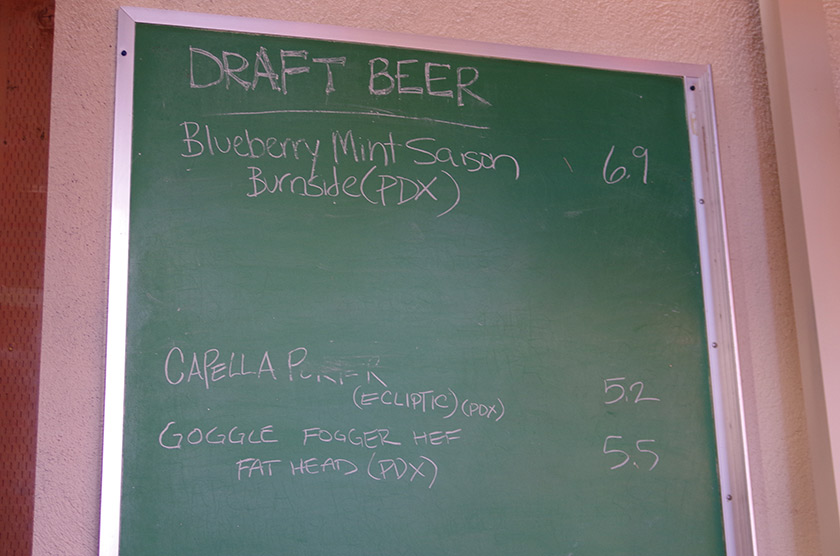 DRAFT BEER
Blueberry Mint Saison 6.9
Burnside (PDX)
CAPELLA PORTER
(ECLIPTIC) (PDX) 5.2
GOGGLE FOGGER HEF 5.5
FAT HEAD (PDX)